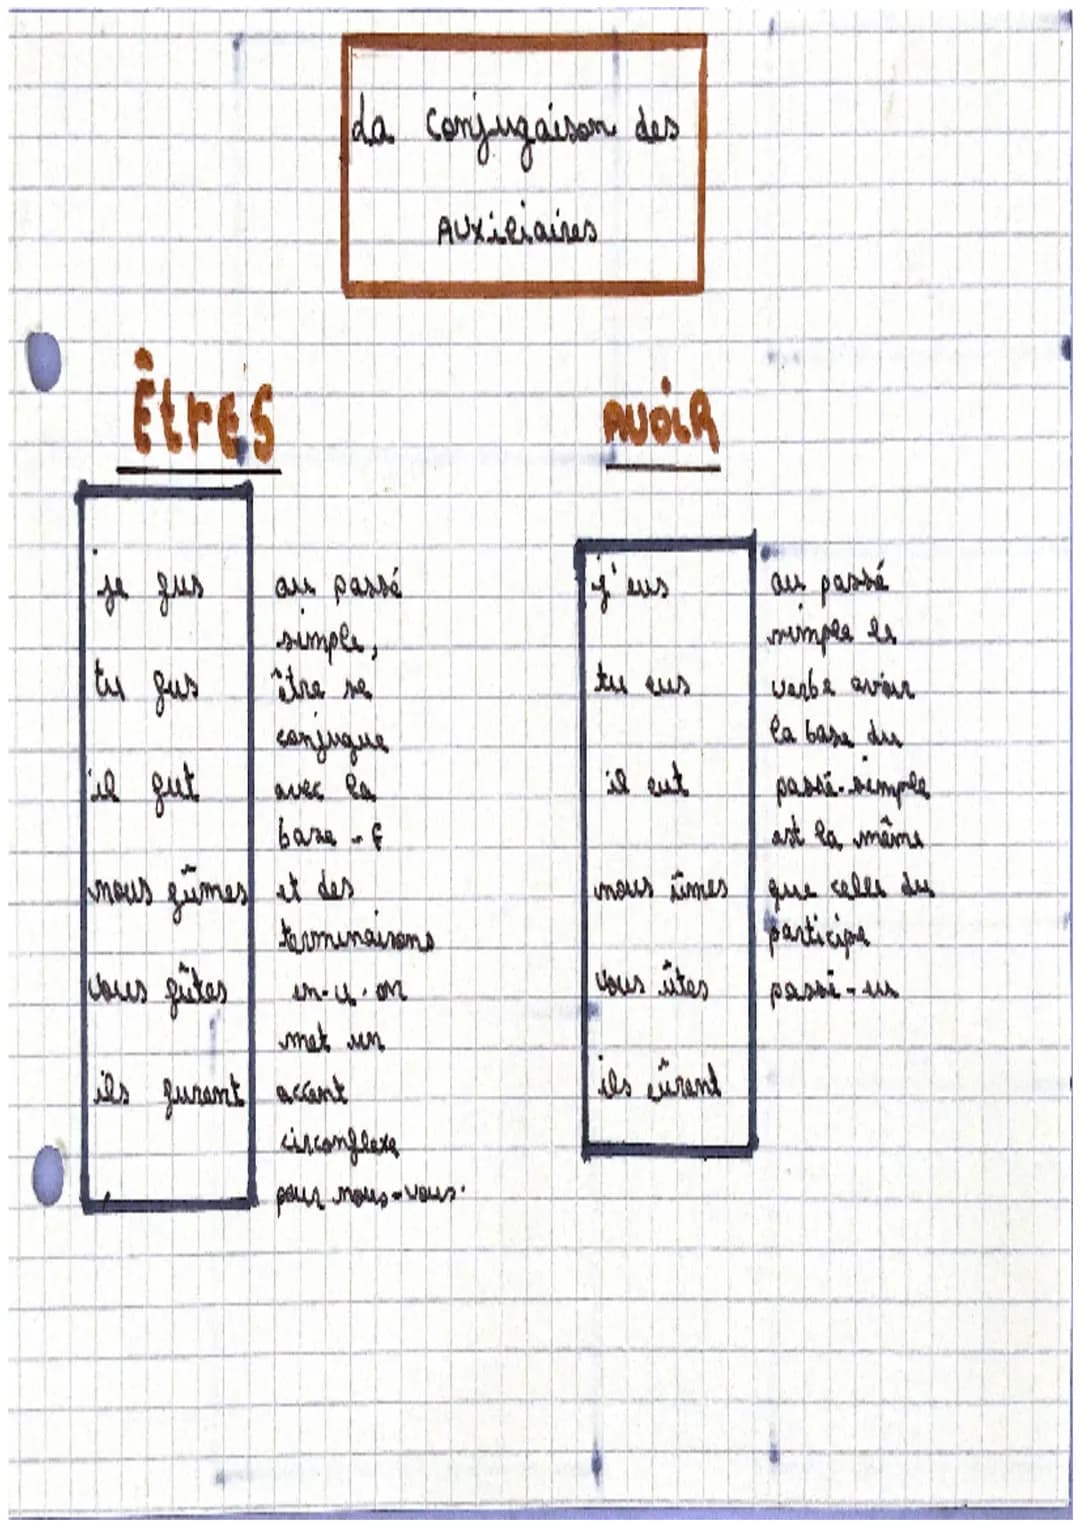 La conjugaison des
Auxiliaires
ÊtrES
je fus
tu fus
il fut
nous fûmes
vous fûtes
ils furent
au passé
simple,
être se
conjugue
avec la
base - f
et des
terminaisons
en-u. on
met un
accent
circonflexe
pour nous-vous.
AVOIR
j'eus
tu eus
il eut
nous ûmes
vous ûtes
ils eûrent
au passé
simple le
verbe avoir
la base du
passé-simple
est la même
que celle du
participe
passé - eu